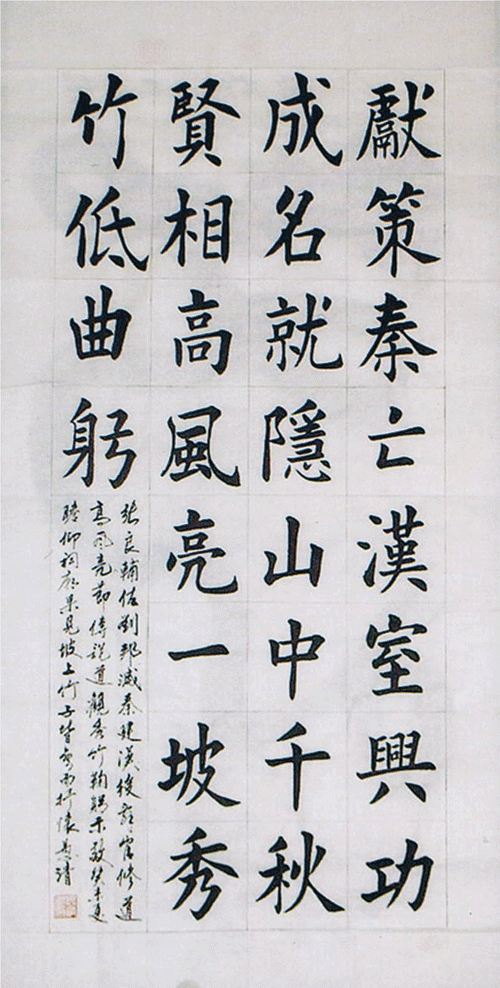 獻策秦亡漢室興功
成名就隱山中千秋
賢相高風亮一坡秀
竹低曲躬
张良輔佐劉邦滅秦建漢後辞官修道
高风亮節傳說道觀秀竹鞠躬示敬癸未夏
瞻仰祠廟果見坡上竹子皆而抒懷清